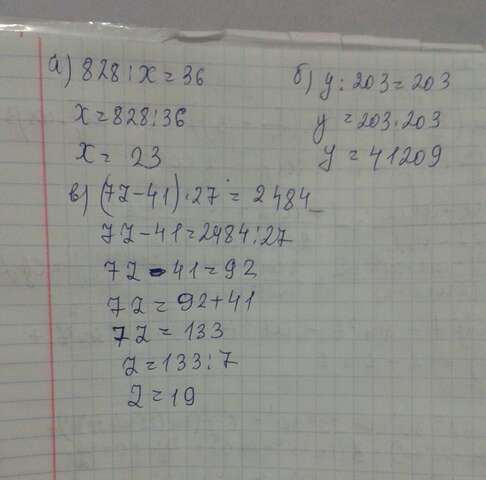 а) 828 : x = 36
x = 828 : 36
x = 23
б) y : 203 = 203
y = 203 · 203
y = 41209
в) (7z - 41) · 27 = 2484
7z - 41 = 2484 : 27
7z - 41 = 92
7z = 92 + 41
7z = 133
z = 133 : 7
z = 19